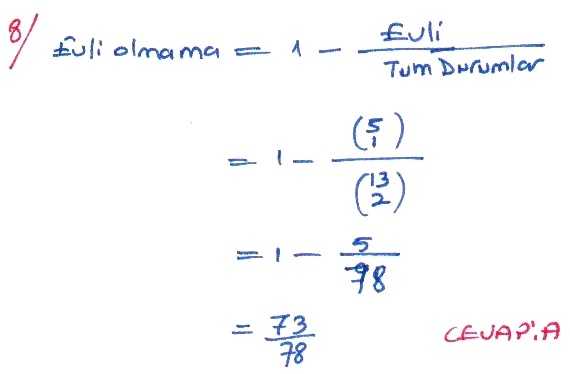 8/ Euli olmama = 1 - Euli / Tum Durumlar
= 1 - (5 1) / (13 2)
= 1 - 5 / 78
= 73 / 78
CEVAP: A